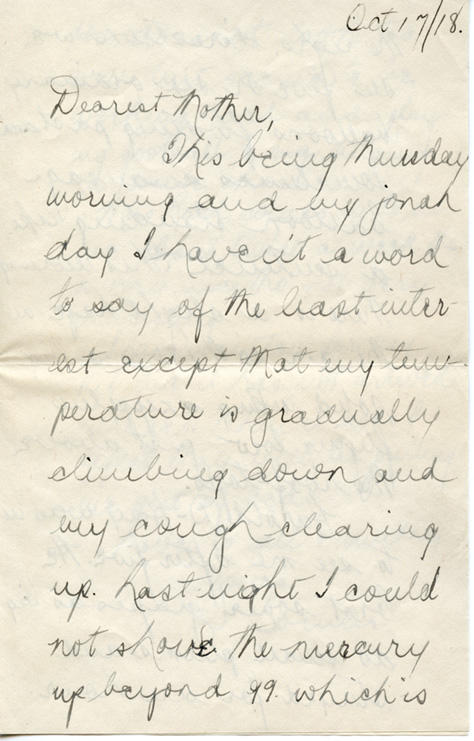 Oct 17/18.
Dearest Mother,
This being Thursday
morning and my jonah
day I haven't a word
to say of the least inter-
est except that my tem-
perature is gradually
climbing down and
my cough clearing
up. Last night I could
not shove the mercury
up beyond 99. which is